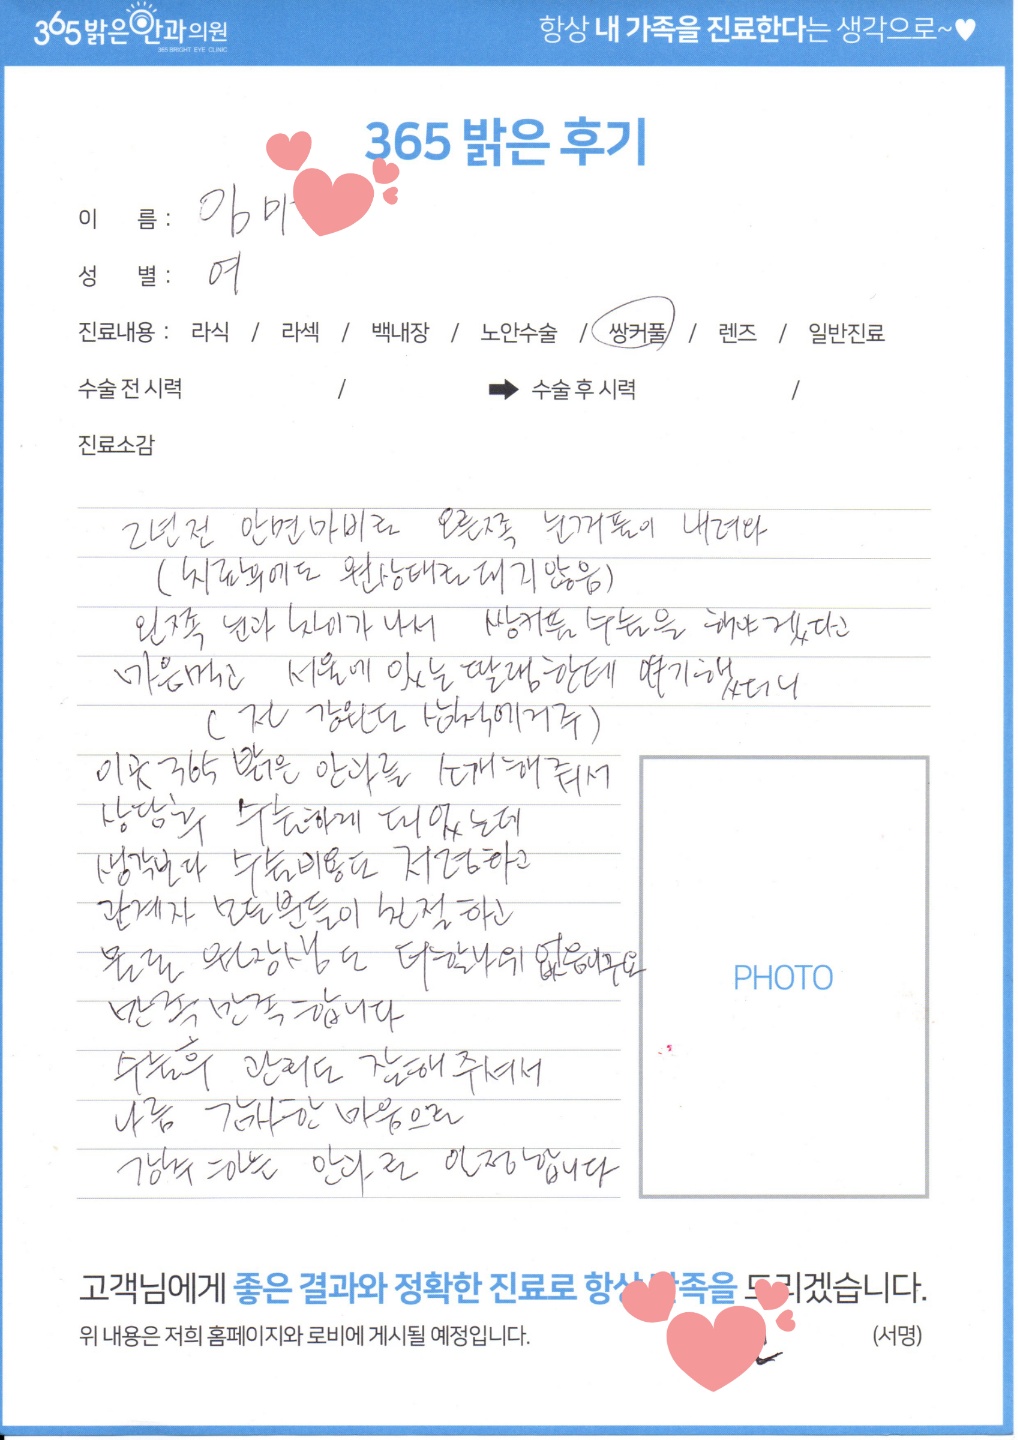 365밝은안과의원
365 BRIGHT EYE CLINIC
항상 내 가족을 진료한다는 생각으로~♥
365 밝은 후기
이 름 : 임 마
성 별 : 여
진료내용 : 라식 / 라섹 / 백내장 / 노안수술 / 쌍커풀 / 렌즈 / 일반진료
수술 전 시력 / ➡ 수술 후 시력 /
진료소감
2년전 안면마비로 오른쪽 눈꺼풀이 내려와
(치료후에도 원상태로 돼지 않음)
왼쪽 눈과 차이가 나서 쌍커풀 수술을 해야겠다고
마음먹고 서울에 있는 딸램한테 얘기했더니
( 전 강원도 삼척에거주)
이곳 365 밝은 안과를 소개해줘서
상담후 수술하게 되었는데
생각보다 수술비용도 저렴하고
관계자 모든분들이 친절하고
물론 원장샘도 더할나위 없음이구요
만족 만족 합니다
수술후 관리도 잘해주셔서
나름 감사한 마음으로
강추하는 안과로 인정합니다
PHOTO
고객님에게 좋은 결과와 정확한 진료로 항상 만족을 드리겠습니다.
위 내용은 저희 홈페이지와 로비에 게시될 예정입니다.
(서명)